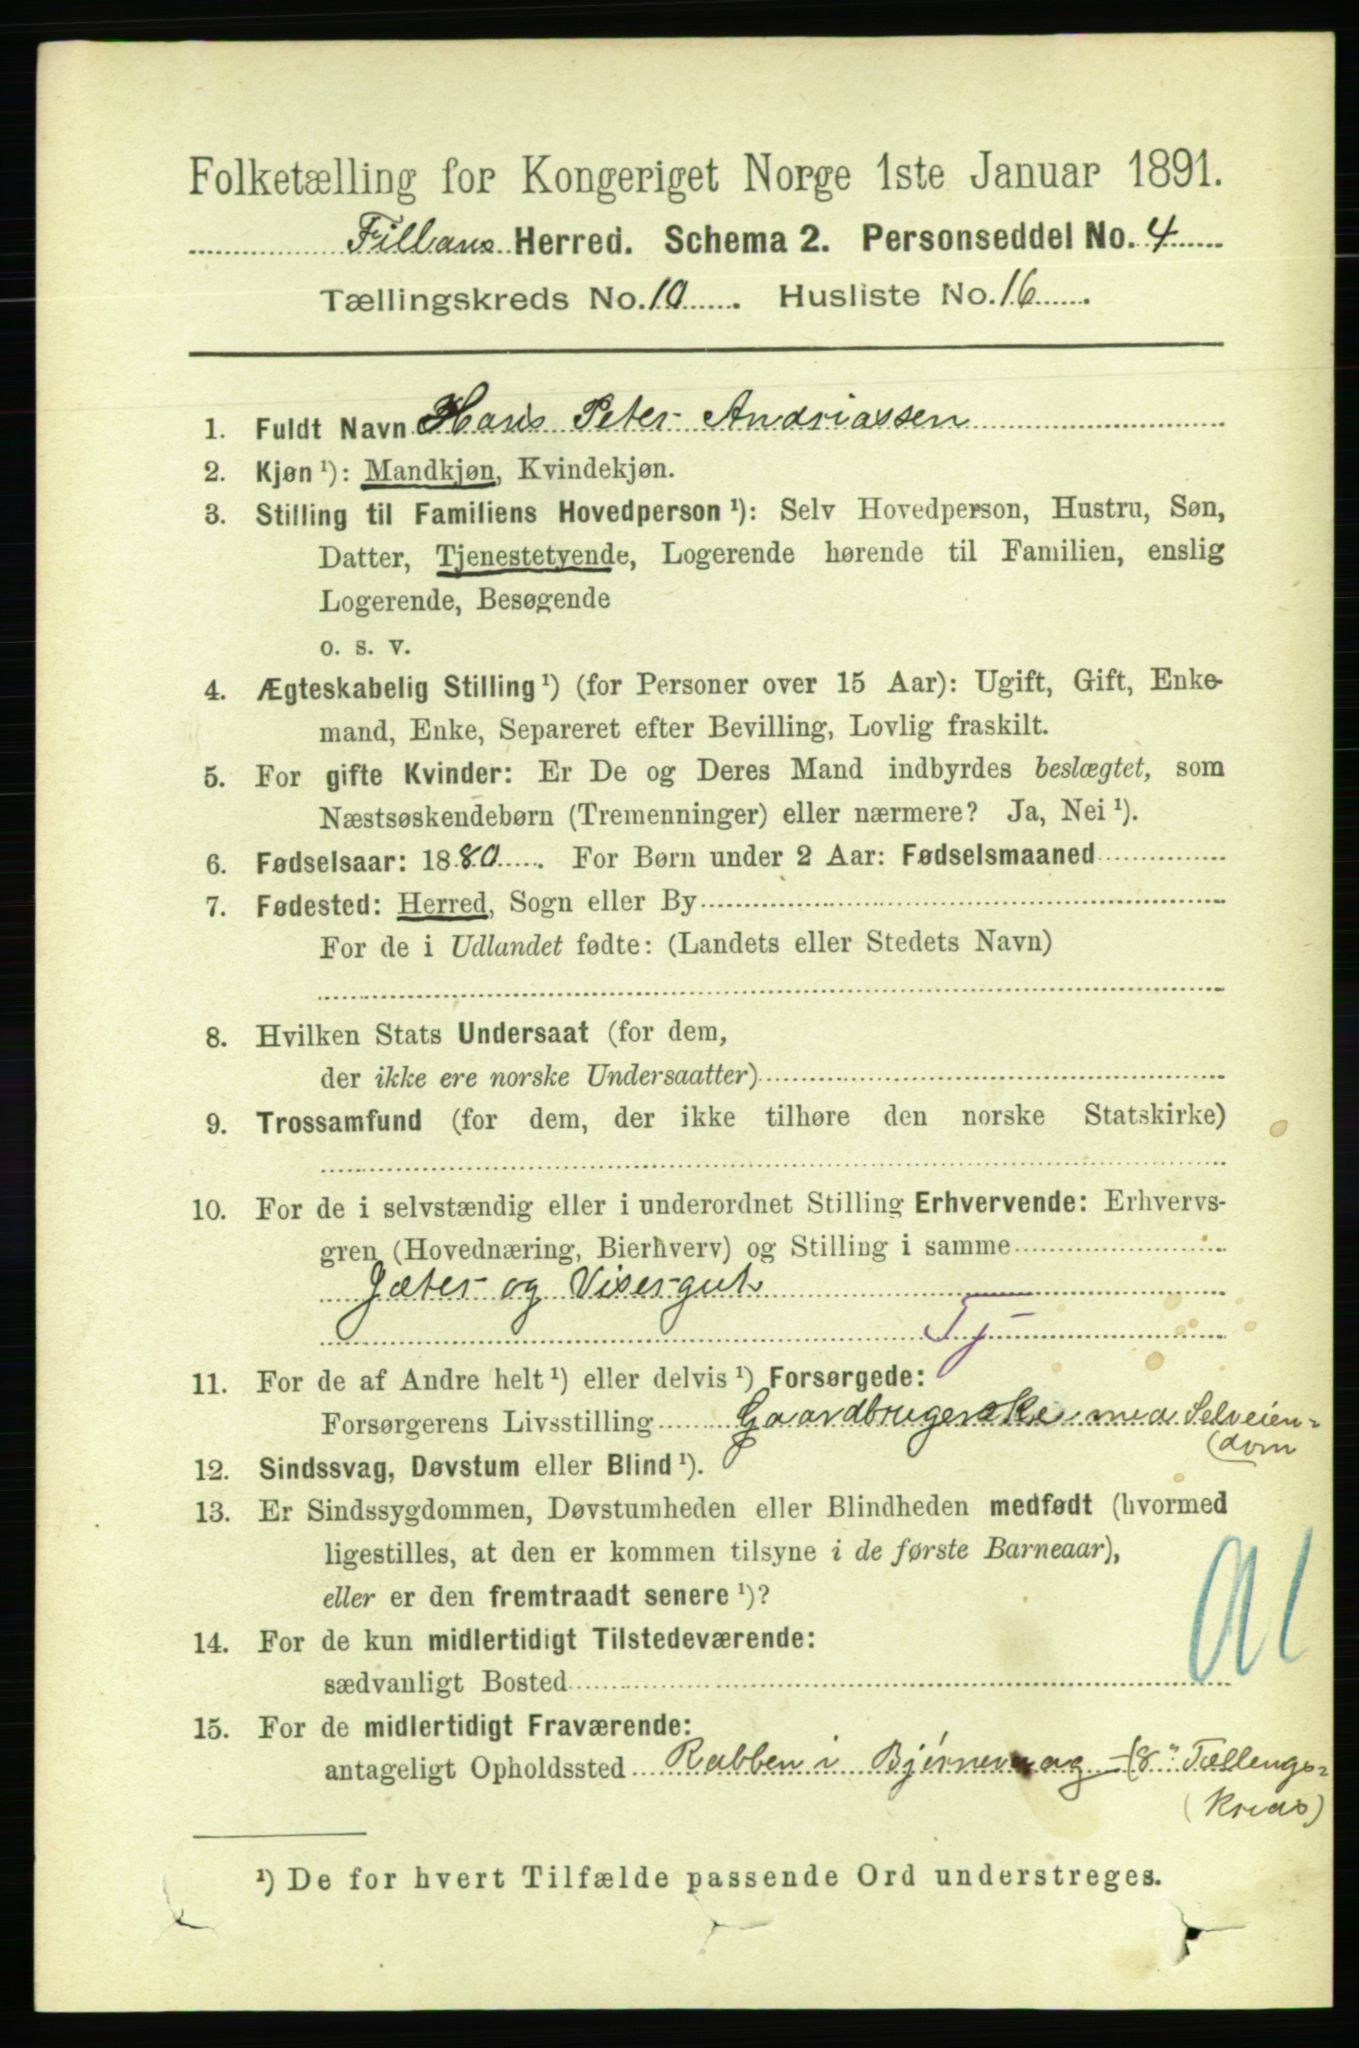 Folketælling for Kongeriget Norge 1ste Januar 1891.
Fillans Herred. Schema 2. Personseddel No. 4
Tællingskreds No. 10. Husliste No. 16.
1. Fuldt Navn Hans Peter Andriassen
2. Kjøn ¹): Mandkjøn, Kvindekjøn.
3. Stilling til Familiens Hovedperson ¹): Selv Hovedperson, Hustru, Søn,
Datter, Tjenestetyende, Logerende hørende til Familien, enslig
Logerende, Besøgende
o. s. v.
4. Ægteskabelig Stilling ¹) (for Personer over 15 Aar): Ugift, Gift, Enke-
mand, Enke, Separeret efter Bevilling, Lovlig fraskilt.
5. For gifte Kvinder: Er De og Deres Mand indbyrdes beslægtet, som
Næstsøskendebørn (Tremenninger) eller nærmere? Ja, Nei ¹).
6. Fødselsaar: 1880. For Børn under 2 Aar: Fødselsmaaned
7. Fødested: Herred, Sogn eller By
For de i Udlandet fødte: (Landets eller Stedets Navn)
8. Hvilken Stats Undersaat (for dem,
der ikke ere norske Undersaatter)
9. Trossamfund (for dem, der ikke tilhøre den norske Statskirke)
10. For de i selvstændig eller i underordnet Stilling Erhvervende: Erhvervs-
gren (Hovednæring, Bierhverv) og Stilling i samme
Gæter og Visergut
Tj
11. For de af Andre helt ¹) eller delvis ¹) Forsørgede:
Forsørgerens Livsstilling Gaardbrugerske med Selveien-
(dom
12. Sindssvag, Døvstum eller Blind ¹).
13. Er Sindssygdommen, Døvstumheden eller Blindheden medfødt (hvormed
ligestilles, at den er kommen tilsyne i de første Barneaar),
eller er den fremtraadt senere ¹)?
14. For de kun midlertidigt Tilstedeværende:
sædvanligt Bosted
15. For de midlertidigt Fraværende:
antageligt Opholdssted Rabben i Bjørnevaag - (8" Tællengs-
(Kreds)
¹) De for hvert Tilfælde passende Ord understreges.